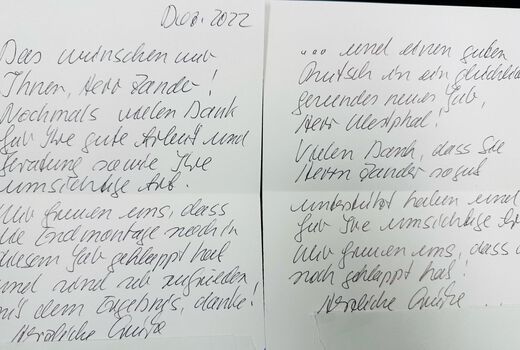 Dez. 2022
Das wünschen wir
Ihnen, Herr Zander!
Nochmals vielen Dank
für Ihre gute Arbeit und
Beratung sowie Ihre
umsichtige Art.
Wir freuen uns, dass
die Endmontage noch in
diesem Jahr geklappt hat
und sind sehr zufrieden
mit dem Ergebnis, danke!
Herzliche Grüße
... und einen guten
Rutsch in ein glückliches
gesundes neues Jahr,
Herr Westphal!
Vielen Dank, dass Sie
Herrn Zander so gut
unterstützt haben und
für Ihre umsichtige Art
Wir freuen uns, dass
noch geklappt hat!
Herzliche Grüße